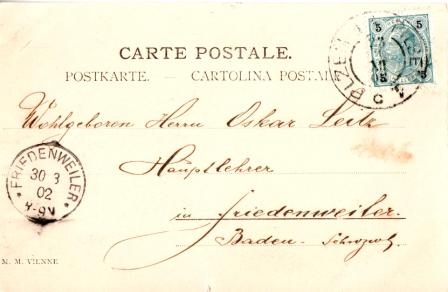 CARTE POSTALE.
POSTKARTE. — CARTOLINA POSTAL
5 5
PLZE
Wohlgeboren Herrn Oskar Leitz
Hauptlehrer
in Friedenweiler.
Baden-
FRIEDENWEILER
30 3
02
4-9N
M. M. VIENNE